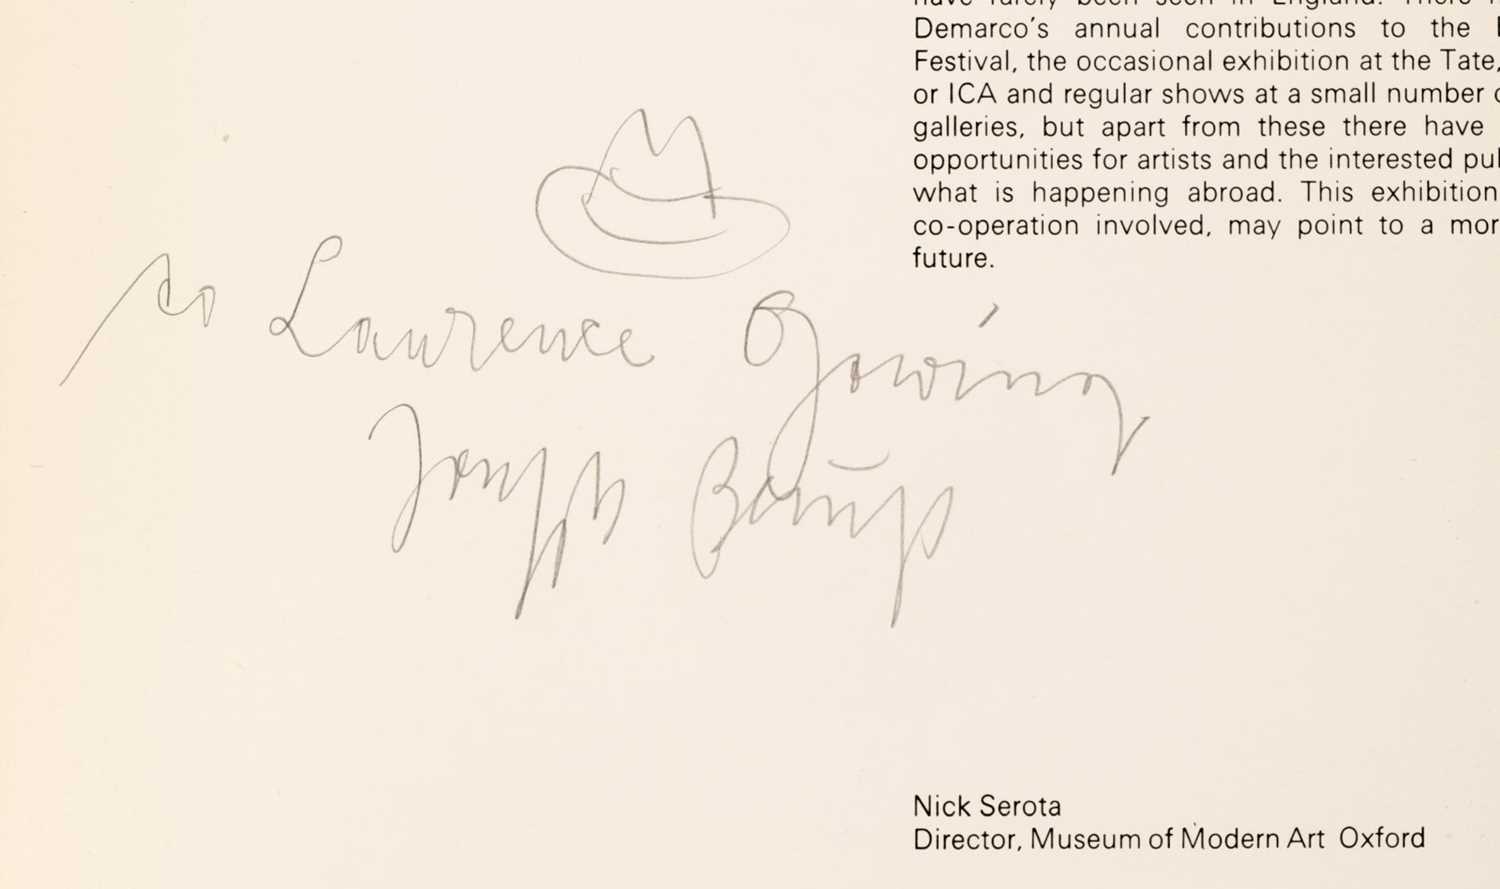 have rarely been seen in England.
Demarco's annual contributions to the
Festival, the occasional exhibition at the Tate,
or ICA and regular shows at a small number
galleries, but apart from these there have
opportunities for artists and the interested
what is happening abroad. This exhibition
co-operation involved, may point to a
future.
to Lawrence Gowing
Joseph Beuys
Nick Serota
Director, Museum of Modern Art Oxford